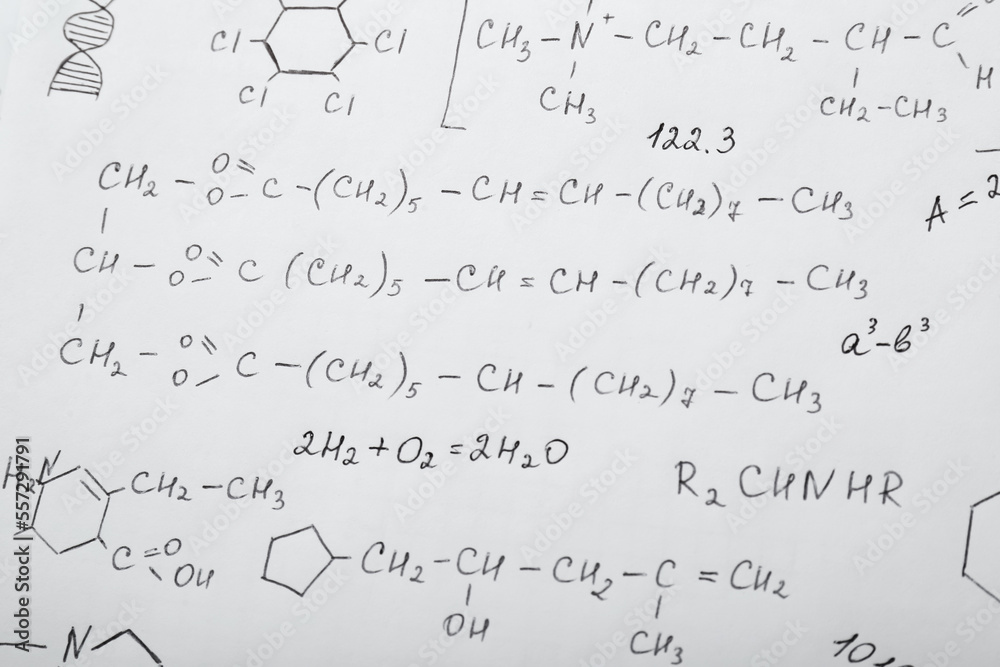 Cl Cl
Cl Cl
CH₃ – N⁺ – CH₂ – CH₂ – CH – C
H
CH₃
CH₂–CH₃
122.3
CH₂ – O O= C –(CH₂)₅ – CH = CH –(CH₂)₇ – CH₃
A = 2
CH – O O= C (CH₂)₅ – CH = CH –(CH₂)₇ – CH₃
a³–b³
CH₂ – O O= C –(CH₂)₅ – CH –(CH₂)₇ – CH₃
2H₂ + O₂ = 2H₂O
N
CH₂ – CH₃
R₂ CHNHR
C = O
OH
CH₂ – CH – CH₂ – C = CH₂
OH
CH₃
N
10
Adobe Stock | #557291791